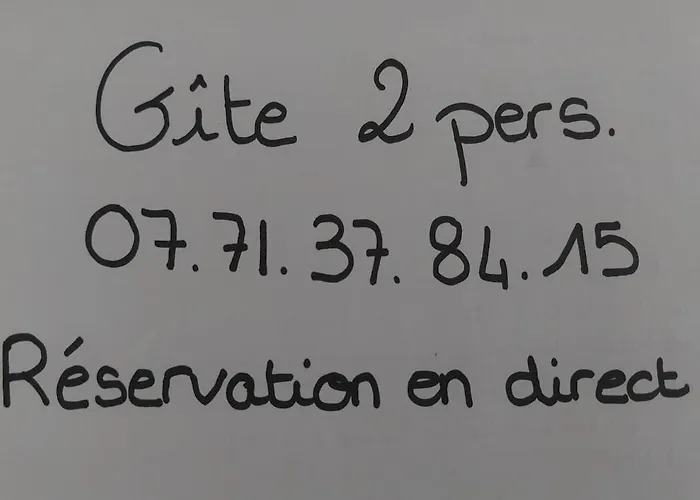 Gîte 2 pers.
07.71.37.84.15
Réservation en direct